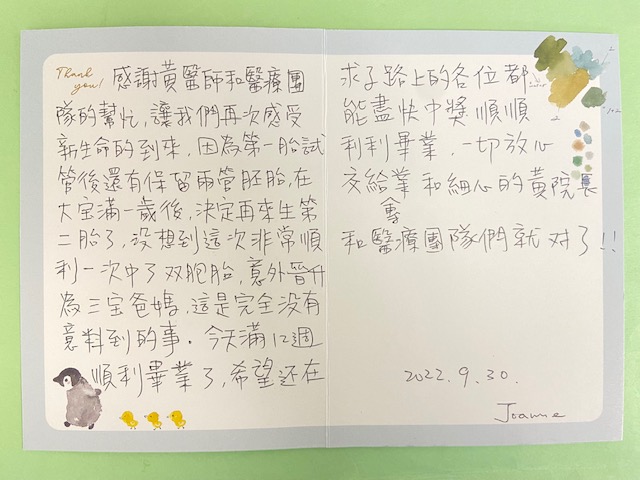 Thank you!
感謝黃醫師和醫療團
隊的幫忙,讓我們再次感受
新生命的到來,因為第一胎試
管後還有保留兩管胚胎,在
大宝滿一歲後,決定再來生第
二胎了,没想到這次非常順
利一次中了双胞胎,意外晉升
為三宝爸媽,這是完全没有
意料到的事。今天滿12週
順利畢業了,希望还在
求子路上的各位都
能盡快中獎順順
利利畢業,一切放心
交給業和細心的黃院長
會
和醫療團隊們就对了!!
2022.9.30.
Joanne